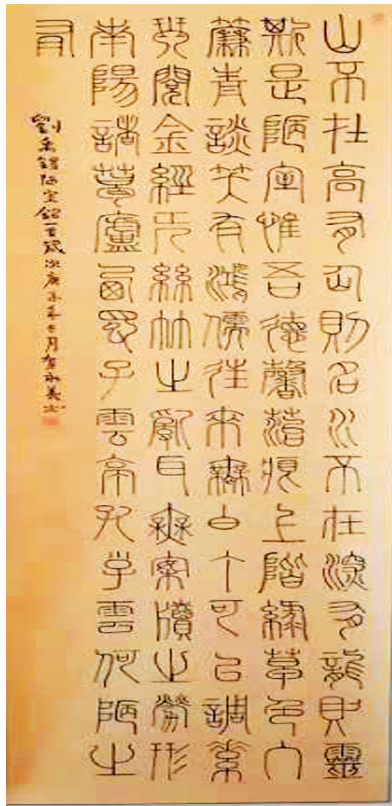 山不在高有仙則名水不在深有龍則靈
斯是陋室惟吾德馨苔痕上階綠草色入
簾青談笑有鴻儒往來無白丁可以調素
琴閱金經无絲竹之亂耳無案牘之勞形
南陽諸葛廬西蜀子雲亭孔子雲何陋之
有
劉禹錫陋室銘一首歲次庚子年月永義